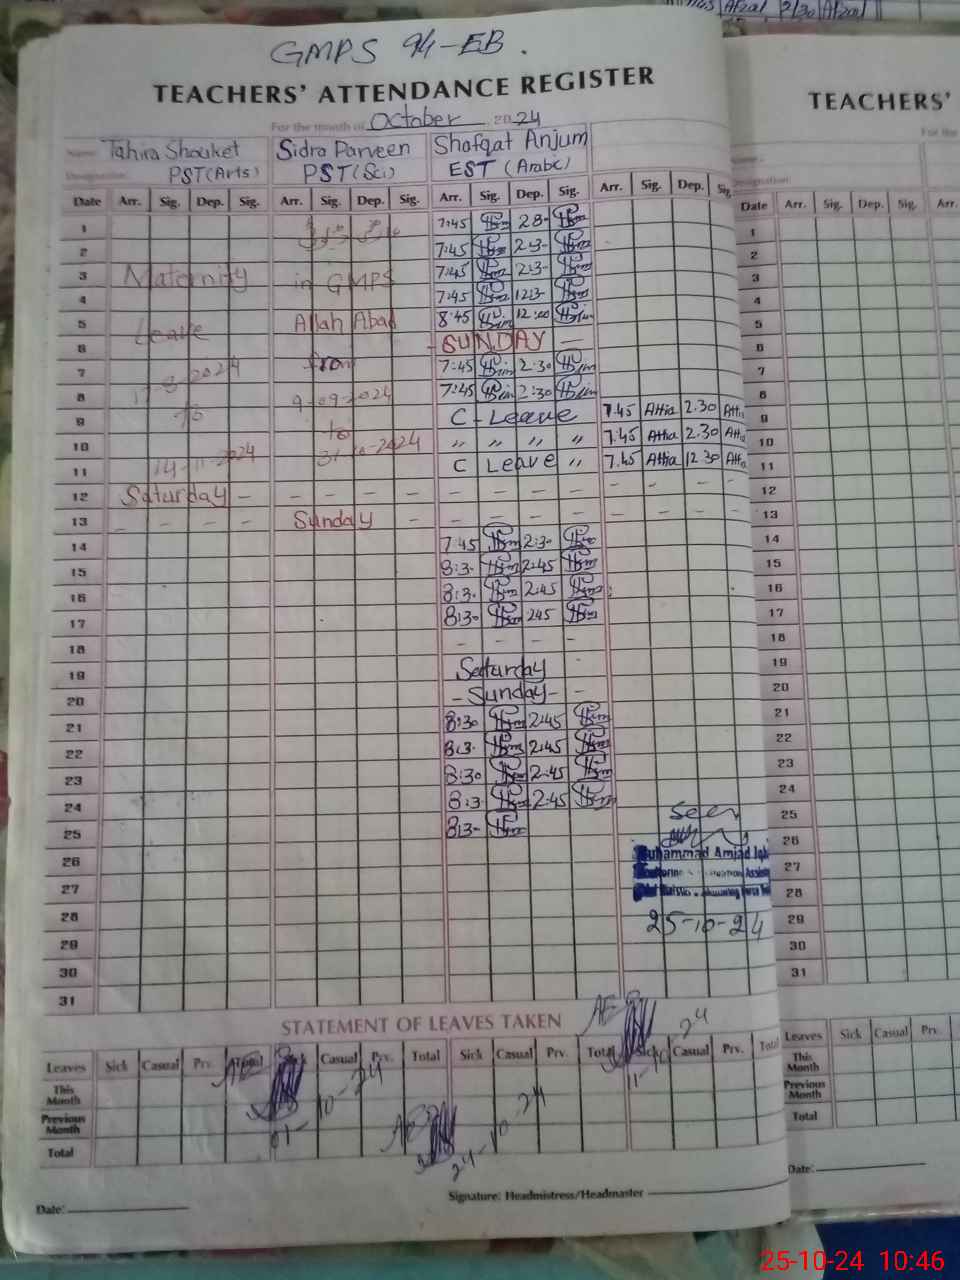 GMPS 94-EB.
TEACHERS' ATTENDANCE REGISTER
For the month of October 2024
Name: Tahira Shouket Sidra Parveen Shafqat Anjum
Designation: PST (Arts) PST (Sci) EST (Arabic)
Date Arr. Sig. Dep. Sig. Arr. Sig. Dep. Sig. Arr. Sig. Dep. Sig. Arr. Sig. Dep. Sig.
1 7:45
2 7:45 2:3-
3 Maternity in GMPS 7:45 2:3-
4 7:45 12:3-
5 Leave Allah Abad 8:45 12:00
6 SUNDAY
7 from 7:45 2:30
8 9-09-2024 7:45 2:30
9 to C-Leave 7.45 Attia 2.30 Attia
10 to 31-10-2024 〃 〃 〃 〃 7.45 Attia 2.30 Attia
11 14-11-2024 C Leave 〃 7.45 Attia 12.30 Attia
12 Saturday - - - - - - - - - - - -
13 - - - - Sunday - - - - - - - - -
14 7:45 2:3-
15 8:3- 2:45
16 8:3- 2:45
17 8:30 2:45
18 - - - -
19 Saturday -
20 - Sunday - -
21 8:30 2:45
22 8:3- 2:45
23 8:30 2:45
24 8:3- 2:45
25 8:3-
Seen
26 Muhammad Amjad
27
28
25-10-24
29
30
31
STATEMENT OF LEAVES TAKEN
Leaves Sick Casual Prv. Total Sick Casual Prv. Total Sick Casual Prv. Total Sick Casual Prv. Total
This Month
Previous Month
Total
Date: Signature: Headmistress/Headmaster
TEACHERS'
For the
Name:
Designation:
Date Arr. Sig. Dep. Sig. Arr.
1
2
3
4
5
6
7
8
9
10
11
12
13
14
15
16
17
18
19
20
21
22
23
24
25
26
27
28
29
30
31
Leaves Sick Casual Prv.
This Month
Previous Month
Total
Date:
25-10-24 10:46